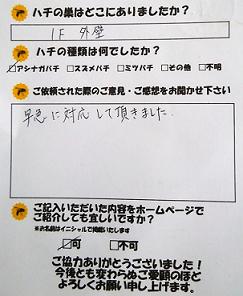 ハチの巣はどこにありましたか?
1F 外壁
ハチの種類は何でしたか?
☑アシナガバチ □スズメバチ □ミツバチ □その他 □不明
ご依頼された際のご意見・ご感想をお聞かせ下さい
早急に対応して頂きました.
ご記入いただいた内容をホームページで
ご紹介しても宜しいですか?
※お名前はイニシャルで掲載いたします
☑可 □不可
ご協力ありがとうございました!
今後とも変わらぬご愛顧のほど
よろしくお願い申し上げます。